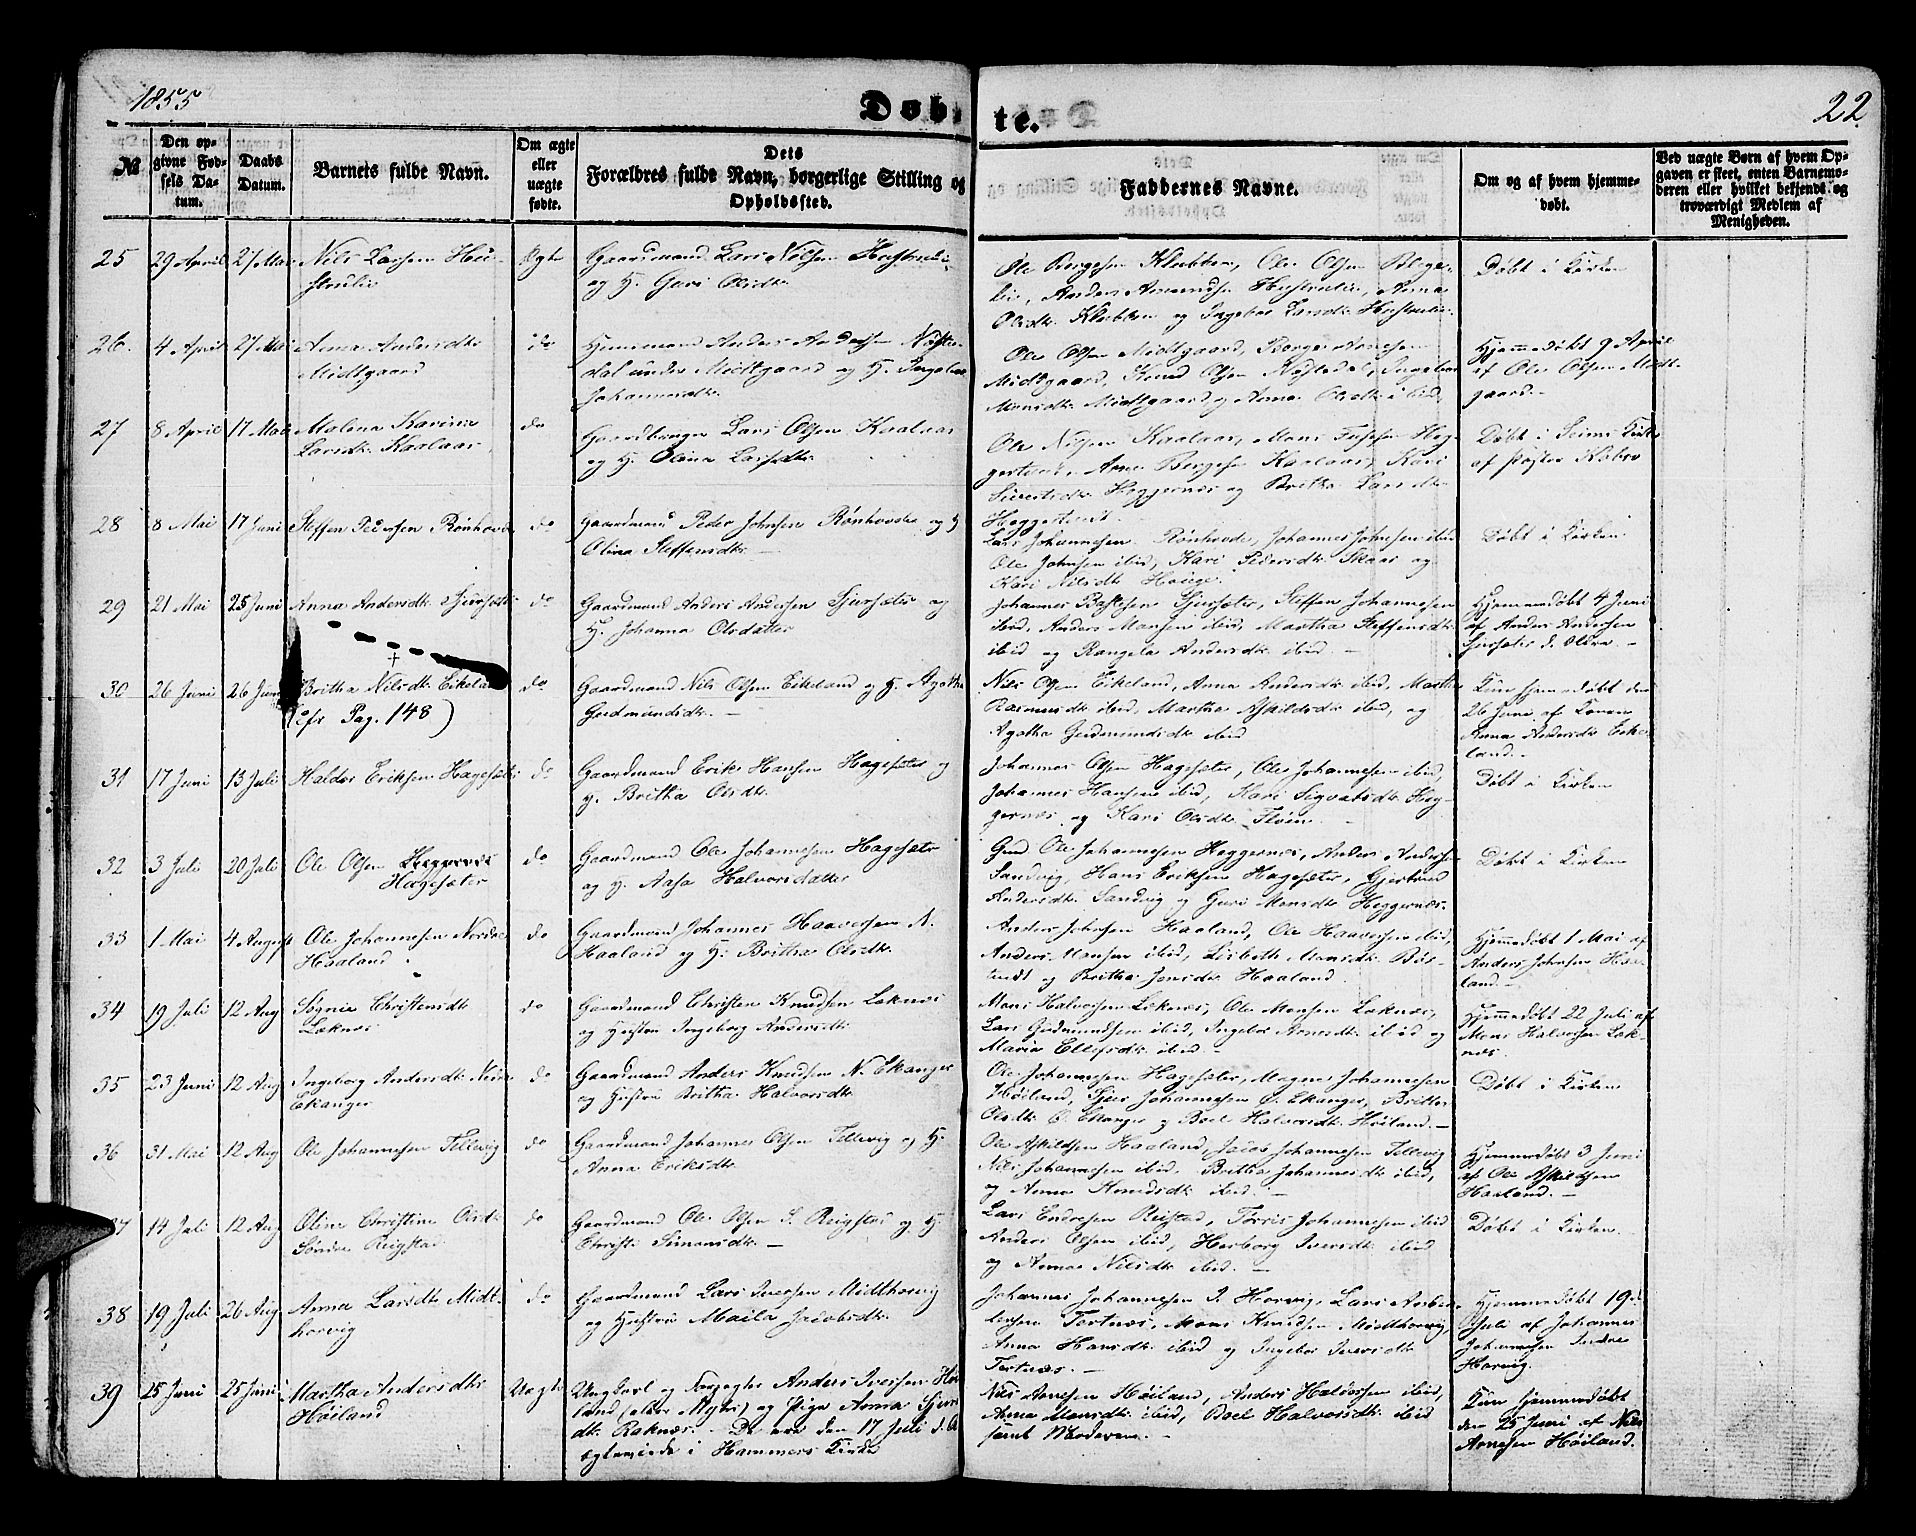 1855
Døbte.
22
№
Den op-
givne Fød-
sels Da-
tum.
Daabs
Datum.
Barnets fulde Navn.
Om ægte
eller
uægte
fødte.
Dets
Forælbres fulde Navn, borgerlige Stilling og
Opholdssted.
Faddernes Navne.
Om og af hvem hjemme-
døbt.
Ved uægte Børn af hvem Op-
gaven er skeet, enten Barnemo-
deren eller hvilket bekjendt og
troværdigt Medlem af
Menigheden.
25 29 April 27 Mai Nils Larsen Hu-
Ægte Gaardmand Lars Nilsen
og H. Guri Olsdtr
Ole Borgesen Klubben, Ole Olsen
Olsdtr Klubben og Ingebor Larsdtr
Døbt i Kirken
26. 4 April 27 Mai Anna Andersdtr
Midtgaard
do Huusmand Anders Andersen Nøste-
dal under Midtgaard og H. Ingebor
Johannesdtr
Ole Olsen Midtgaard, Borge
Midtgaard, Knud Olsen Nøstedal, Ingebor
Monsdtr Midtgaard og Anna Olsdtr ibid.
Hjemmedøbt 9 April
af Ole Olsen Midt-
gaard.-
27 8 April 17 Mai Malena Karina
Larsdtr Kaalaas
do Gaardbruger Lars Olsen Kaalaas
og H. Olina Larsdtr
Ole Nilsen Kaalaas, Mons
Anna Borgesen Kaalaas, Kari
Sivertsdtr Heggernes og Britha Larsdtr
Døbt i Seims Kirke
af Præsten
28 8 Mai 17 Juni Steffen Pedersen Rønhovde
do Gaardmand Peder Johnsen Rønhovde og H
Olina Steffensdtr -
Lars Johannesen Rønhovde, Johannes Johnsen ibid
Ole Johnsen ibid, Kari Pedersdtr Skaar og
Kari Nilsdtr Hauge.
Døbt i Kirken
29 21 Mai 25 Juni Anna Andersdtr Sjursæter
do Gaardmand Anders Andersen Sjursæter og
H. Johanna Olsdatter
Johannes Sjursæter, Steffen Johannesen
ibid, Anders Monsen ibid, Martha Steffensdtr
ibid og Rangela Andersdtr ibid. -
Hjemmedøbt 4 Juni
af Anders Andersen
Sjursæter d. Ældre -
30 26 Juni 26 Juni Britha Nilsdtr Eikeland
(cfr Pag. 148)
do Gaardmand Nils Olsen Eikeland og H. Agatha
Gudmundsdtr. -
Nils Olsen Eikeland, Anna Andersdtr ibid, Martha
Rasmusdtr ibid, Martha Askildsdtr ibid, og
Agatha Gudmundsdtr ibid
Kun hjemmedøbt den
26 Juni af Konen
Anna Andersdtr Eike-
land. -
31 17 Juni 13 Juli Haldor Eriksen Hagesæter
do Gaardmand Erik Hansen Hagesæter og
H. Britha Olsdtr
Johannes Olsen Hagesæter, Ole Johannesen ibid,
Johannes Hansen ibid, Kari Sigvatsdtr Heg-
gernæs og Kari Olsdtr
Døbt i Kirken
32 3 Juli 20 Juli Ole Olsen Heggernes
Hagesæter
do Gaardmand Ole Johannesen Hagesæter
og H. Aasa Halvorsdatter
Gmd Ole Johannesen Heggernæs, Anders Andersen
Sandvig, Hans Eriksen Hagesæter, Gjertrud
Andersdtr Sandvig og Guri Monsdtr Heggernæs.
Døbt i Kirken
33 1 Mai 4 August Ole Johannesen Nordre
Haaland
do Gaardmand Johannes Haaversen N.
Haaland og H. Britha Olsdtr
Anders Johnsen Haaland, Ole Haaversen ibid,
Anders Monsen ibid, Lisbeth Monsdtr
og Britha Jensdtr Haaland.
Hjemmedøbt 1 Mai af
Anders Johnsen Haa-
land. -
34 19 Juli 12 Aug Sygnie Christensdtr
Leknæs
do Gaardmand Christen Knudsen Leknæs
og Hustru Ingeborg Andersdtr
Mons Halvorsen Leknæs, Ole Monsen Leknæs,
Lars Gudmundsen ibid, Ingebor Arnesdtr ibid og
Maria Ellefsdtr ibid. -
Hjemmedøbt 22 Juli af
Mons Halvorsen Lek-
næs.
35 23 Juni 12 Aug Ingeborg Andersdtr Nedre
Ekanger
do Gaardmand Anders Knudsen N. Ekanger
og Hustru Britha Halvorsdtr
Ole Johannesen Hagesæter, Magne Johannesen
Høiland, Sjur Johannesen Ø. Ekanger, Britha
Olsdtr Ø. Ekanger og Boel Halvorsdtr Høiland. -
Døbt i Kirken
36 31 Mai 12 Aug Ole Johannesen Tellevig
do Gaardmand Johannes Olsen Tellevig og H.
Anna Eriksdtr
Ole Askildsen Haaland, Jacob Johannesen Tellevig
Nils Johannesen ibid, Britha Johannesdtr ibid,
og Anna Knudsdtr ibid. -
Hjemmedøbt 3 Juni
af Ole Askildsen
Haaland. -
37 14 Juli 12 Aug Oline Christine Olsdtr
Søndre Reigstad
do Gaardmand Ole Olsen S. Reigstad og H.
Christi Simonsdtr -
Lars Endresen Reistad, Torris Johannesen ibid
Anders Olsen ibid, Herborg Iversdtr ibid
og Anna Nilsdtr ibid. -
Døbt i Kirken.
38 19 Juli 26 Aug Anna Larsdtr Midt-
horvig
do Gaardmand Lars Iversen Midthorvig
og Hustru Maila Jacobsdtr
Johannes Johannesen I. Horvig, Lars
Tertnæs, Mons Knudsen Midthorvig,
Anna Hansdtr ibid og Ingebor Iversdtr
Tertnæs. -
Hjemmedøbt 19de
Juli af Johannes
Johannesen Indre
Horvig.
39 25 Juni 25 Juni Martha Andersdtr
Høiland
Uægte Ungkarl og Anders Iversen Høi-
land (eller Myhr) og Pige Anna Sjurs-
dtr Raknæs. - De ere den 17 Juli d. A
ægteviede i Hammers Kirke
Nils Arnesen Høiland, Anders Halvorsen ibid,
Anna Monsdtr ibid, Boel Halvorsdtr ibid
samt Moderen. -
Kun hjemmedøbt
den 25 Juni af Nils
Arnesen Høiland.